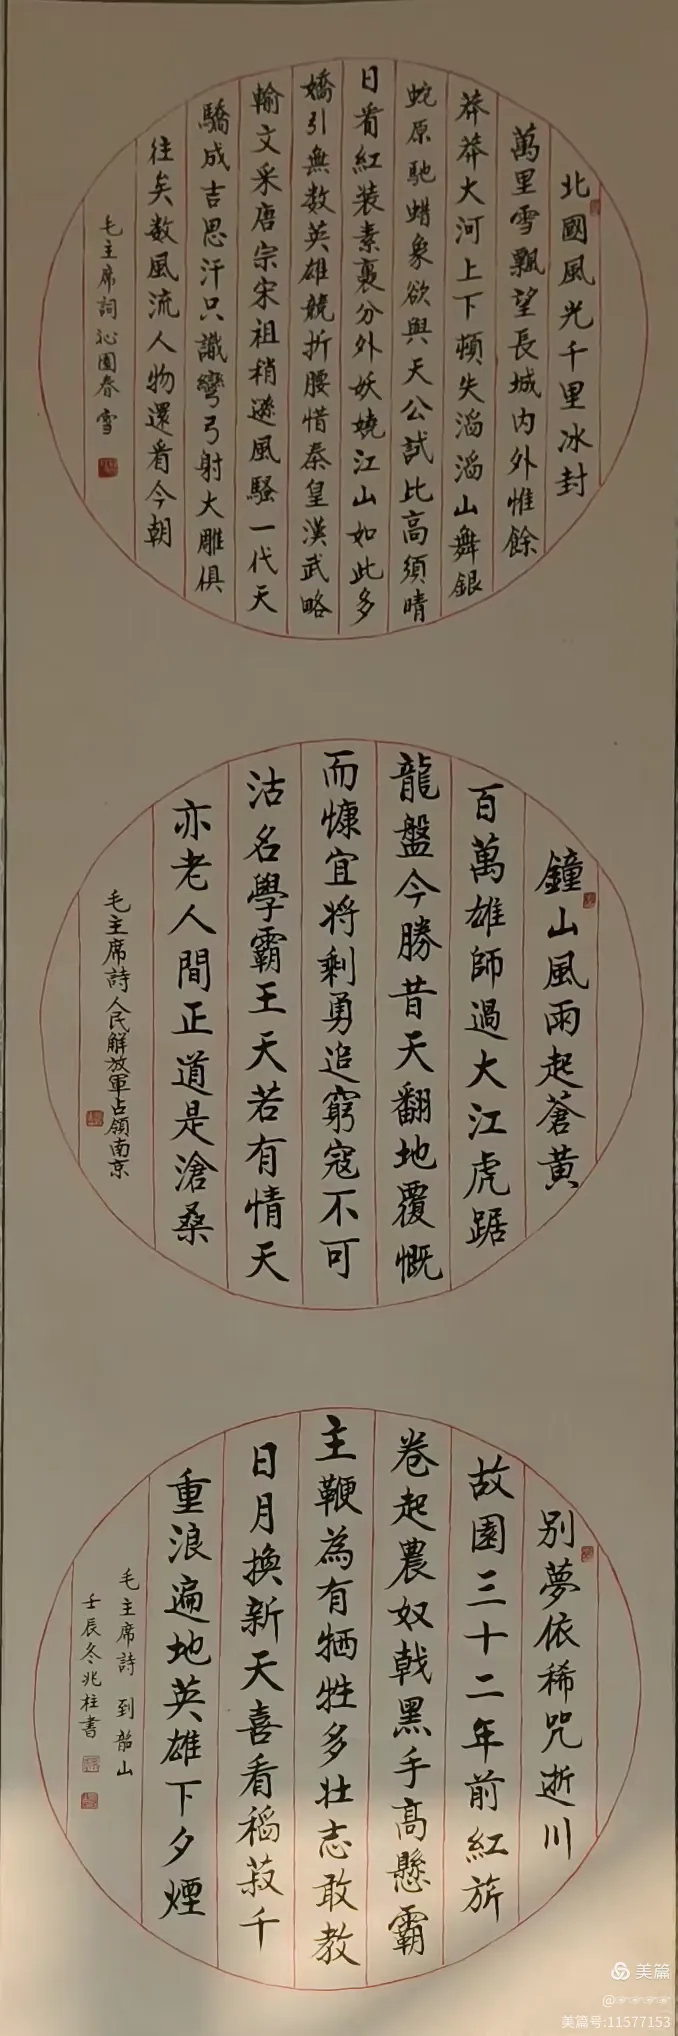 北國風光千里冰封
萬里雪飄望長城内外惟餘
莽莽大河上下頓失滔滔山舞銀
蛇原馳蜡象欲與天公試比高須晴
日看紅装素裹分外妖嬈江山如此多
嬌引無数英雄競折腰惜秦皇漢武略
輸文采唐宗宋祖稍遜風騷一代天
驕成吉思汗只識彎弓射大雕俱
往矣数風流人物還看今朝
毛主席詞沁園春雪
鐘山風雨起蒼黄
百萬雄師過大江虎踞
龍盤今勝昔天翻地覆慨
而慷宜将剩勇追窮寇不可
沽名學霸王天若有情天
亦老人間正道是滄桑
毛主席詩人民解放軍占領南京
别夢依稀咒逝川
故園三十二年前紅旂
卷起農奴戟黑手高懸霸
主鞭為有牺牲多壮志敢教
日月换新天喜看稻菽千
重浪遍地英雄下夕煙
毛主席詩 到韶山
壬辰冬兆柱書
美篇
美篇号:11577153